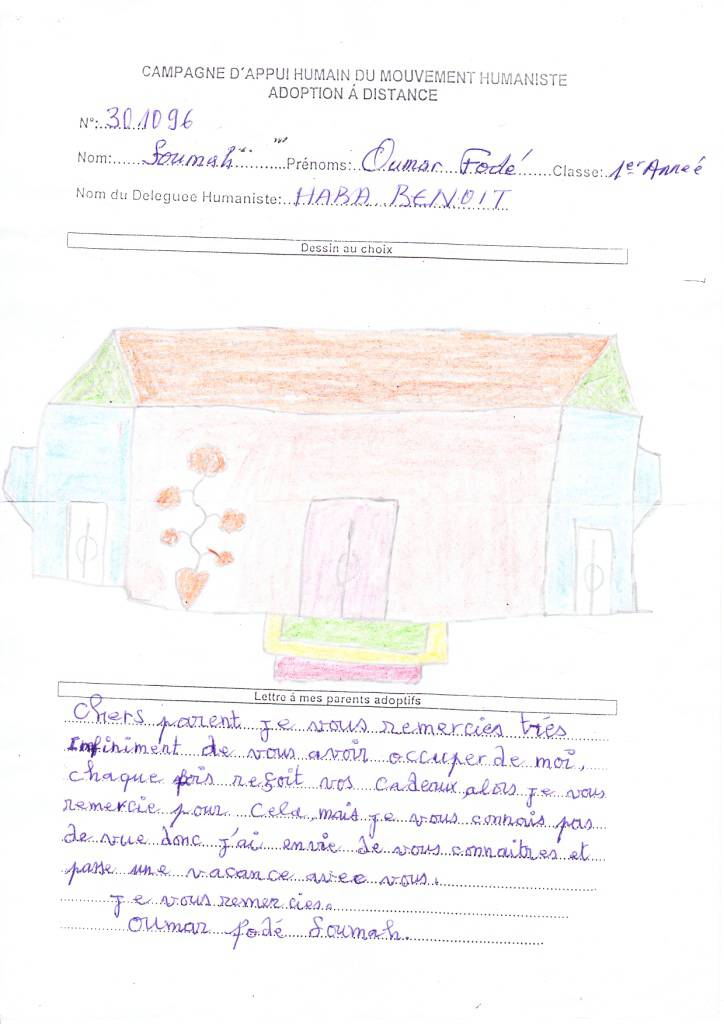 CAMPAGNE D'APPUI HUMAIN DU MOUVEMENT HUMANISTE
ADOPTION Á DISTANCE
N°: 301096
Nom: Soumah Prénoms: Oumar Fodé Classe: 1er Anneé
Nom du Deleguee Humaniste: HABA BENOIT
Dessin au choix
Lettre á mes parents adoptifs
Chers parent je vous remercies très
Infiniment de vous avoir occuper de moi,
chaque fois reçoit vos cadeaux, alors je vous
remercie pour cela, mais je vous connais pas
de vue donc j'ai envie de vous connaitres et
passe une vacance avec vous.
je vous remercies.
OUmar fodé Soumah.